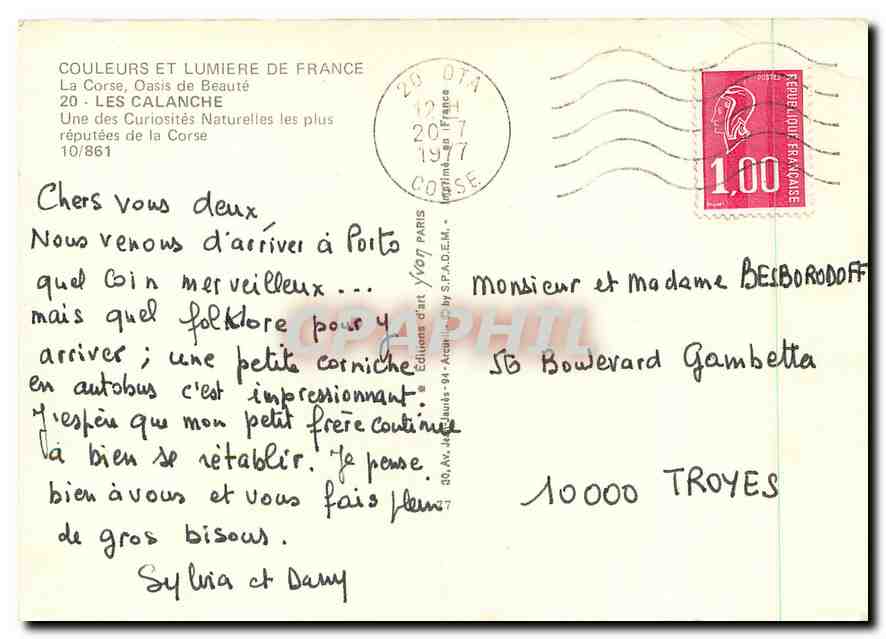 COULEURS ET LUMIERE DE FRANCE
La Corse, Oasis de Beauté
20 - LES CALANCHE
Une des Curiosités Naturelles les plus
réputées de la Corse
10/861
Chers vous deux,
Nous venons d'arriver à Porto
quel coin merveilleux...
mais quel folklore pour y
arriver ; une petite corniche
en autobus c'est impressionnant.
J'espère que mon petit frère continue
à bien se rétablir. Je pense
bien à vous et vous fais plein
de gros bisous.
Sylvia et Dany
20 OTA
12 H
20-7
1977
CORSE
POSTES
RÉPUBLIQUE FRANÇAISE
1,00
Editions d'art Yvon PARIS
30, Av. Jean-Jaurès - 94 - Arcueil - © by S.P.A.D.E.M. - Imprimé en France
Monsieur et Madame BESBORODOFF
56 Boulevard Gambetta
10000 TROYES
CPAPHIL